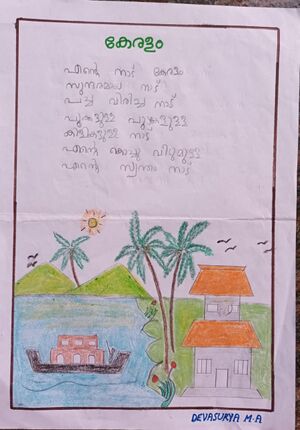 കേരളം
എന്റെ നാട് കേരളം
സുന്ദരമായ നാട്
പച്ച വിരിച്ച നാട്
പൂക്കളുള്ള പുഴകളുള്ള
കിളികളുള്ള നാട്
എന്റെ കൊച്ചു വീടുമുള്ള
എന്റെ സ്വന്തം നാട്
DEVASURYA M.A